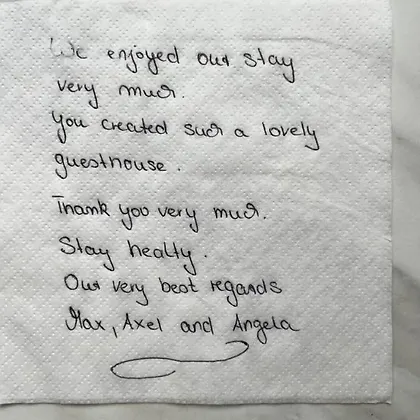 We enjoyed our stay
very much.
You created such a lovely
guesthouse.
Thank you very much.
Stay healty.
Our very best regards
Max, Axel and Angela